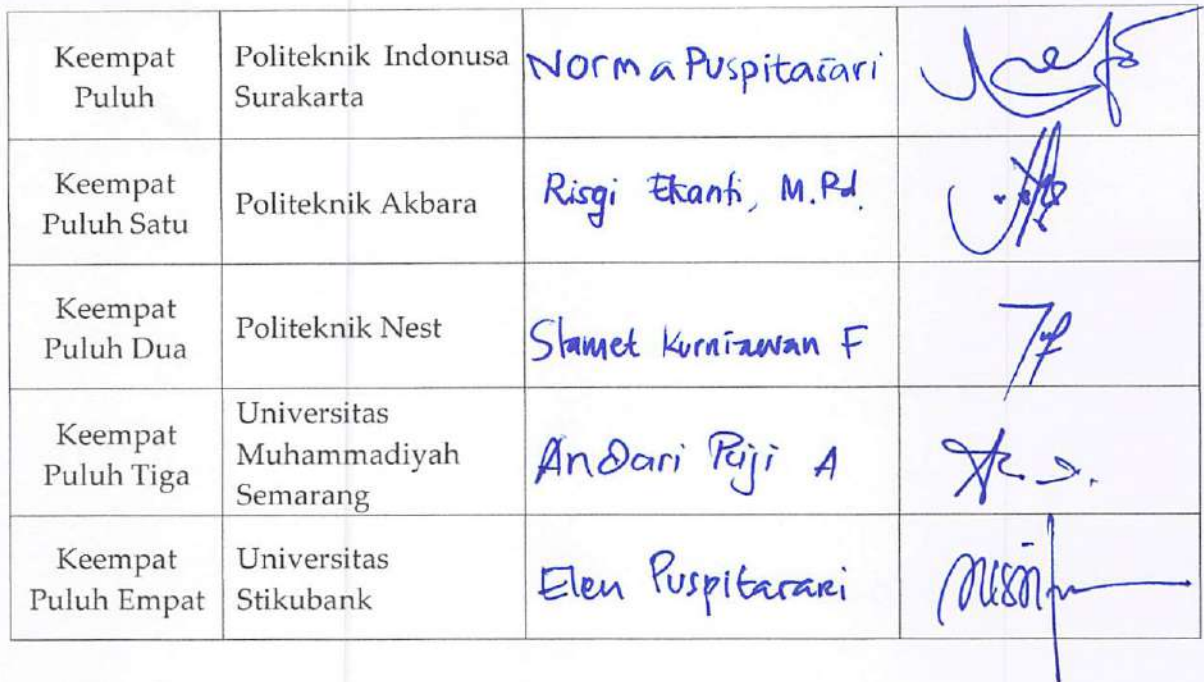 Keempat Puluh
Politeknik Indonusa Surakarta
Norma Puspitasari
Keempat Puluh Satu
Politeknik Akbara
Risqi Ekanti, M.Pd.
Keempat Puluh Dua
Politeknik Nest
Slamet Kurniawan F
Keempat Puluh Tiga
Universitas Muhammadiyah Semarang
Andari Puji A
Keempat Puluh Empat
Universitas Stikubank
Elen Puspitasari